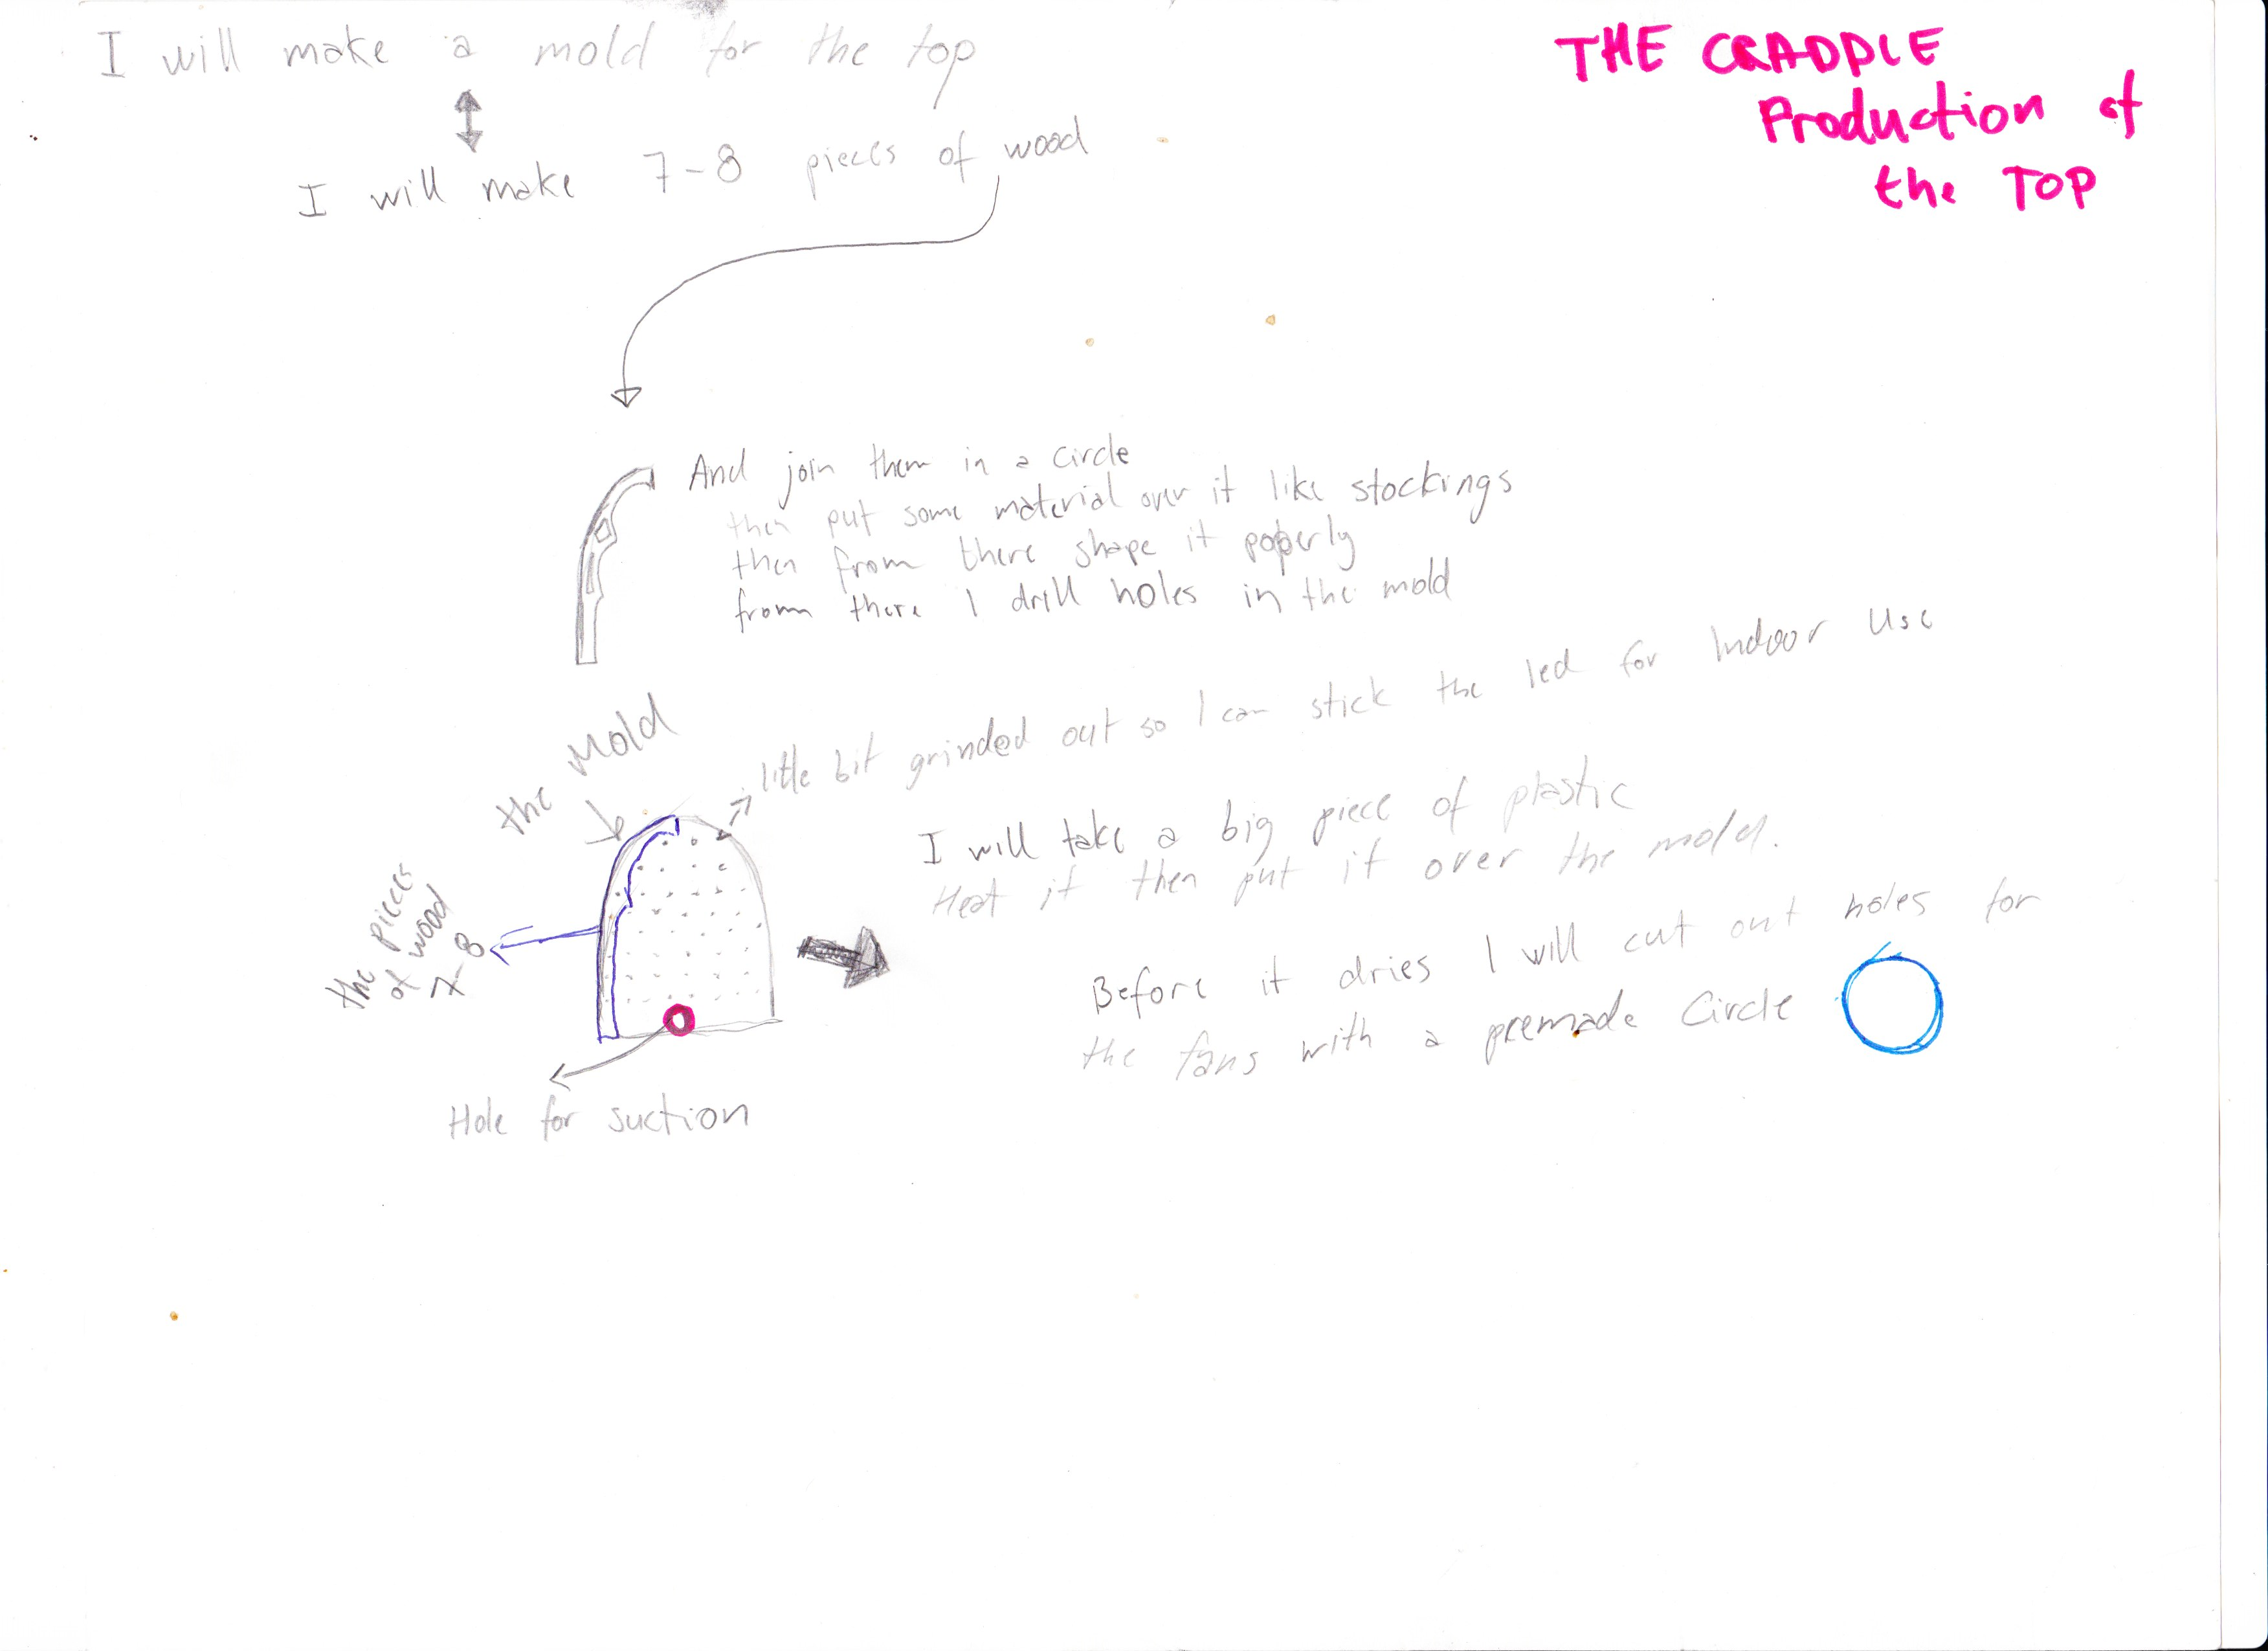 I will make a mold for the top
THE CRADDLE
Production of
the TOP
I will make 7-8 pieces of wood
And join them in a circle
then put some material over it like stockings
then from there shape it poperly
from there I drill holes in the mold
the Mold
little bit grinded out so I can stick the led for Indoor Use
I will take a big piece of plastic
Heat it then put it over the mold.
the pieces
of wood
7-8
Before it dries I will cut out holes for
the fans with a premade Circle
Hole for suction